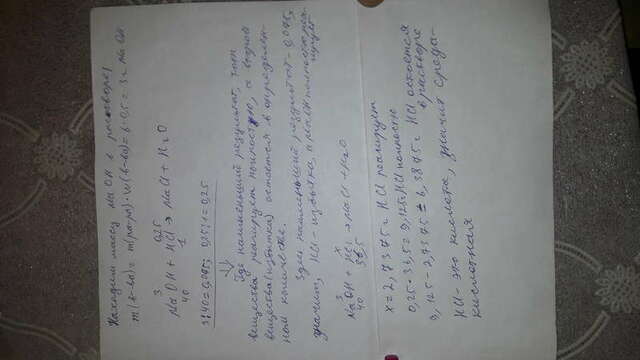 Находим массу NaOH в растворе;
m(в-ва) = m(р-ра)·W(в-ва) = 6·0,5 = 3г NaOH
3 0,25
NaOH + HCl → NaCl + H₂O
40 1
3:40=0,075; 0,25:1=0,25
⇓
Где наименьший результат, тот
вещества реагирует полностью, а второе
вещества (избытка) остается в определен-
ном количестве.
Здесь наименьший результат - 0,075,
значит, HCl - избытка, а NaOH полностью реа-
гирует
3 x
NaOH + HCl → NaCl + H₂O
40 36,5
x = 2,7375г HCl реагирует
0,25·36,5 = 9,125г HCl полностью
9,125-2,7375 = 6,3875г HCl остается
в растворе
HCl - это кислота, значит среда -
кислотная